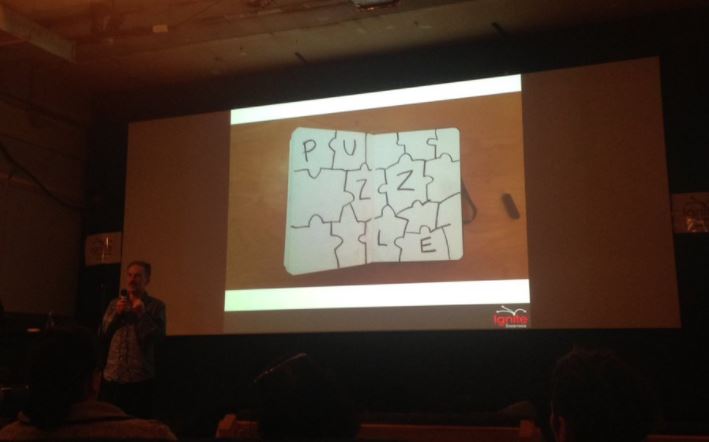 PU
ZZ
LE
Ignite